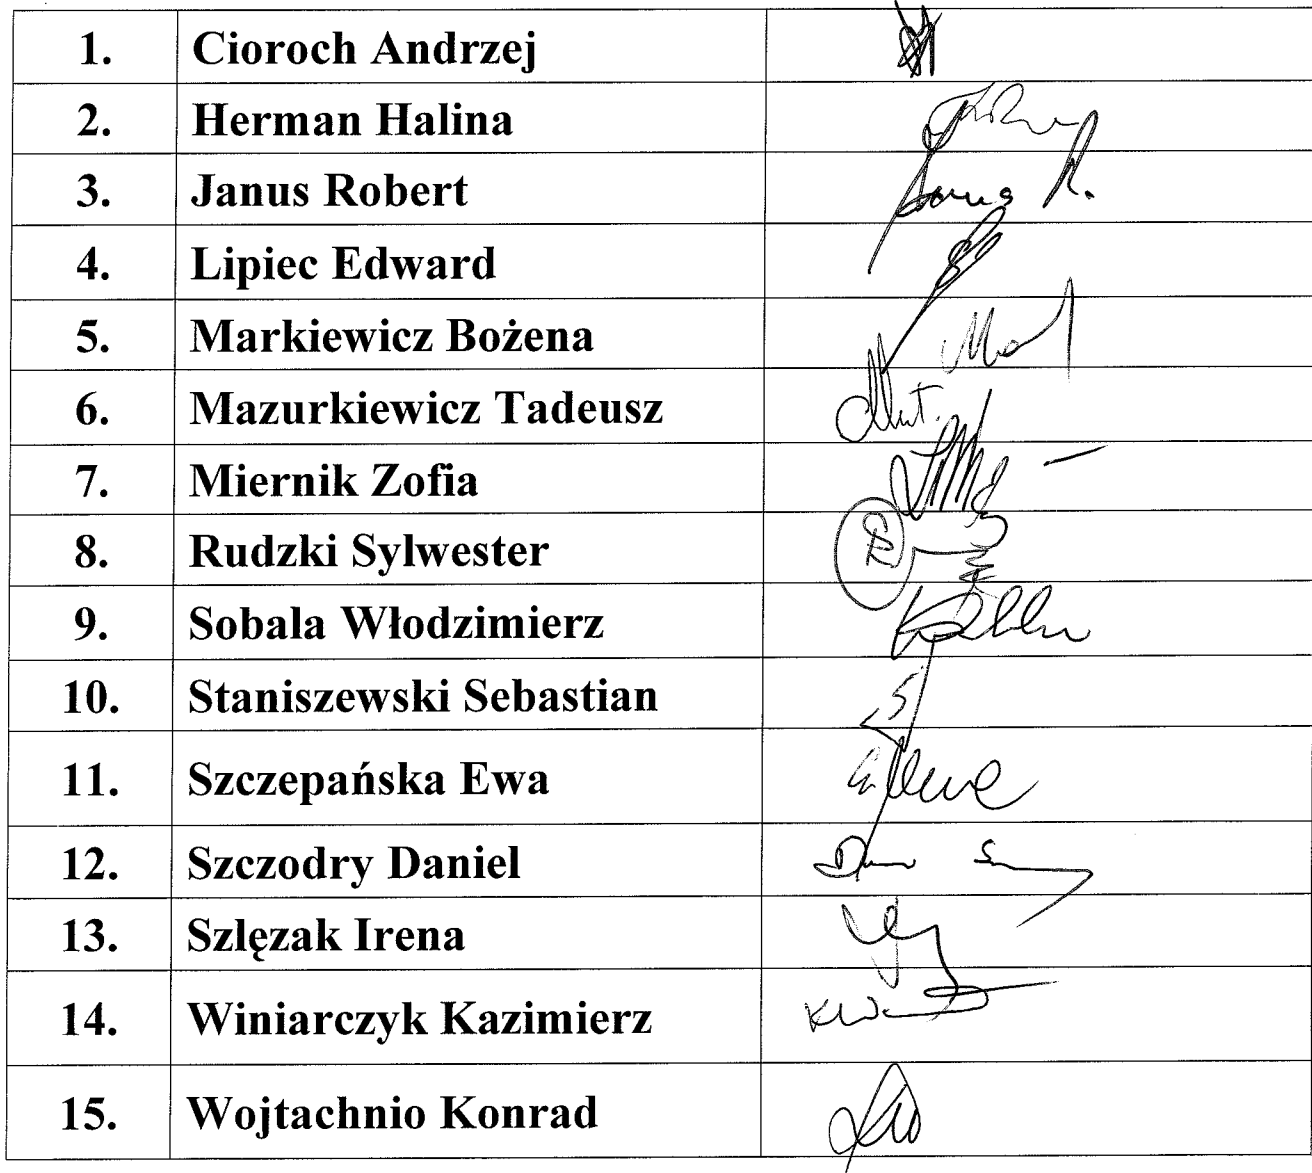 1. Cioroch Andrzej
2. Herman Halina
3. Janus Robert Janus R.
4. Lipiec Edward
5. Markiewicz Bożena
6. Mazurkiewicz Tadeusz
7. Miernik Zofia
8. Rudzki Sylwester
9. Sobala Włodzimierz
10. Staniszewski Sebastian
11. Szczepańska Ewa
12. Szczodry Daniel
13. Szlęzak Irena
14. Winiarczyk Kazimierz
15. Wojtachnio Konrad